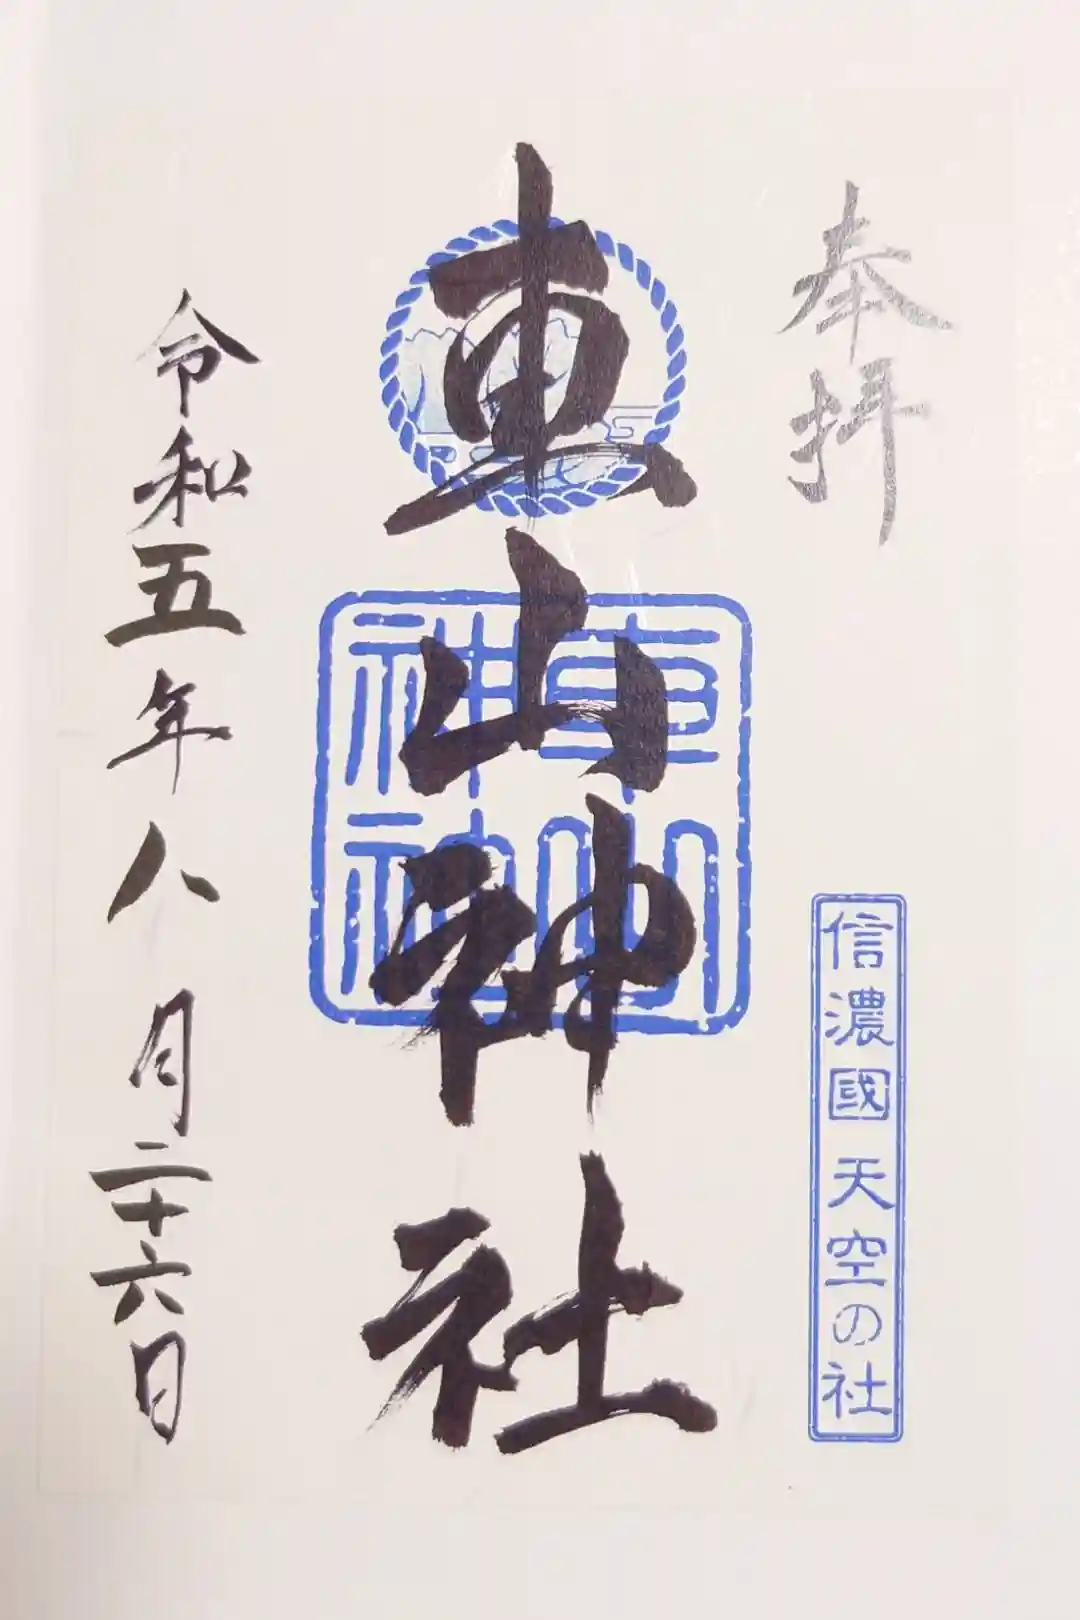 奉拝
信濃國 天空の社
車山神社
車山
神社
令和五年八月二十六日